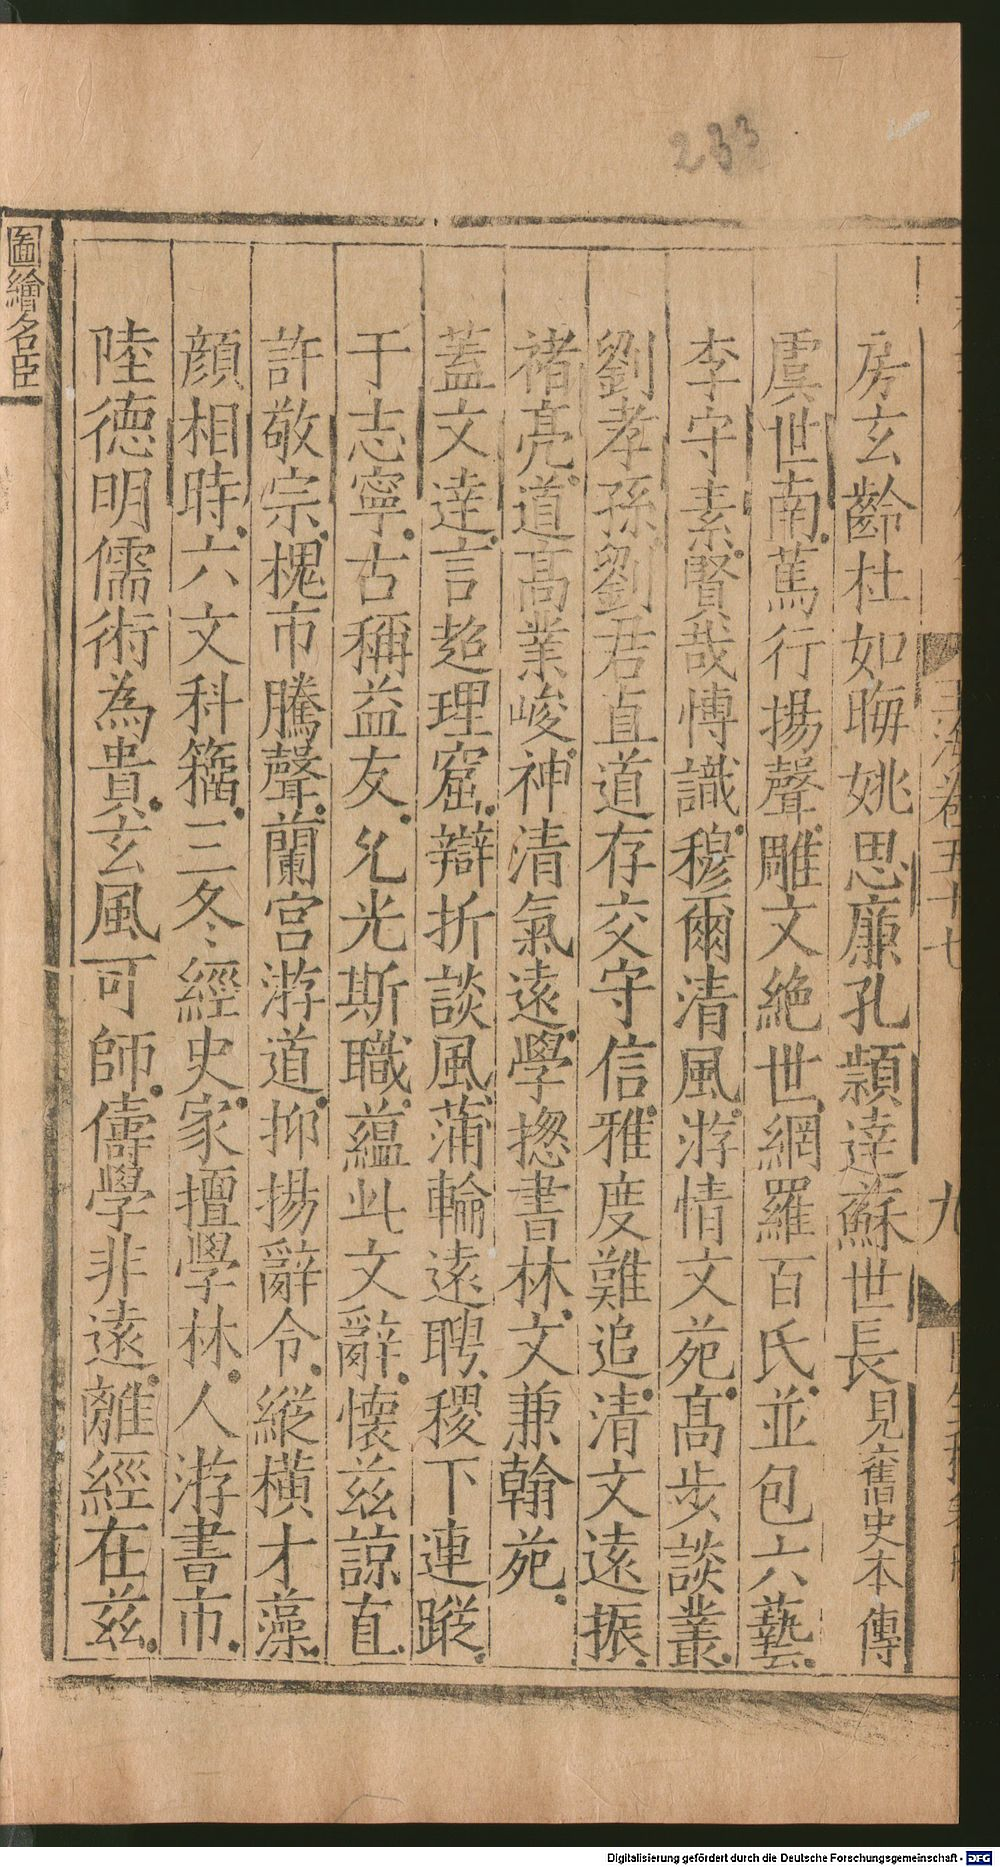 233
玉海卷五十七
九
房玄齡杜如晦姚思廉孔穎達蘇世長見舊史本傳
虞世南篤行揚聲雕文絶世網羅百氏並包六藝
李守素賢哉博識穆爾清風游情文苑髙步談叢
劉孝孫劉君直道存交守信雅度難追清文遠振
禇亮道髙業峻神清氣遠學揔書林文兼翰苑
蓋文達言超理窟辯折談風蒲輪遠聘稷下連蹤
于志寧古稱益友允光斯職蘊此文辭懷兹諒直
許敬宗槐市騰聲蘭宫游道抑揚辭令縱橫才藻
顔相時六文科籀三冬經史家擅學林人游書市
陸德明儒術為貴玄風可師儔學非遠離經在兹
圖繪名臣
Digitalisierung gefördert durch die Deutsche Forschungsgemeinschaft - DFG